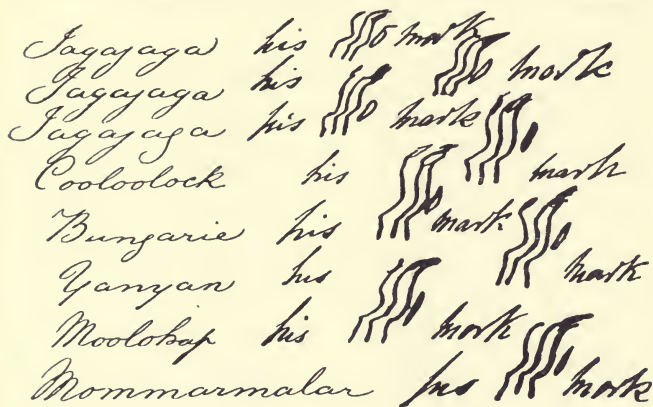 Jagajaga his mark
Jagajaga his mark
Jagajaga his mark
Cooloolock his mark
Bungarie his mark
Yanyan his mark
Moolohap his mark
Mommarmalar his mark